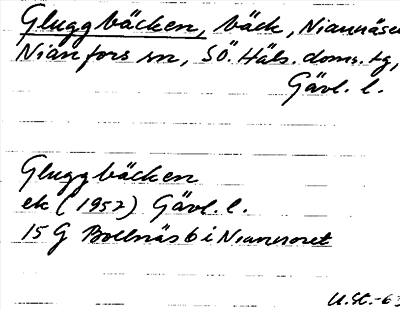 Gluggbäcken, bäck, Niannäsen
Nianfors sn, SÖ. Häls. doms. tg,
Gävl. l.
Gluggbäcken
ek (1957) Gävl. l.
15 G Bollnäs 6 i
U.St.-63